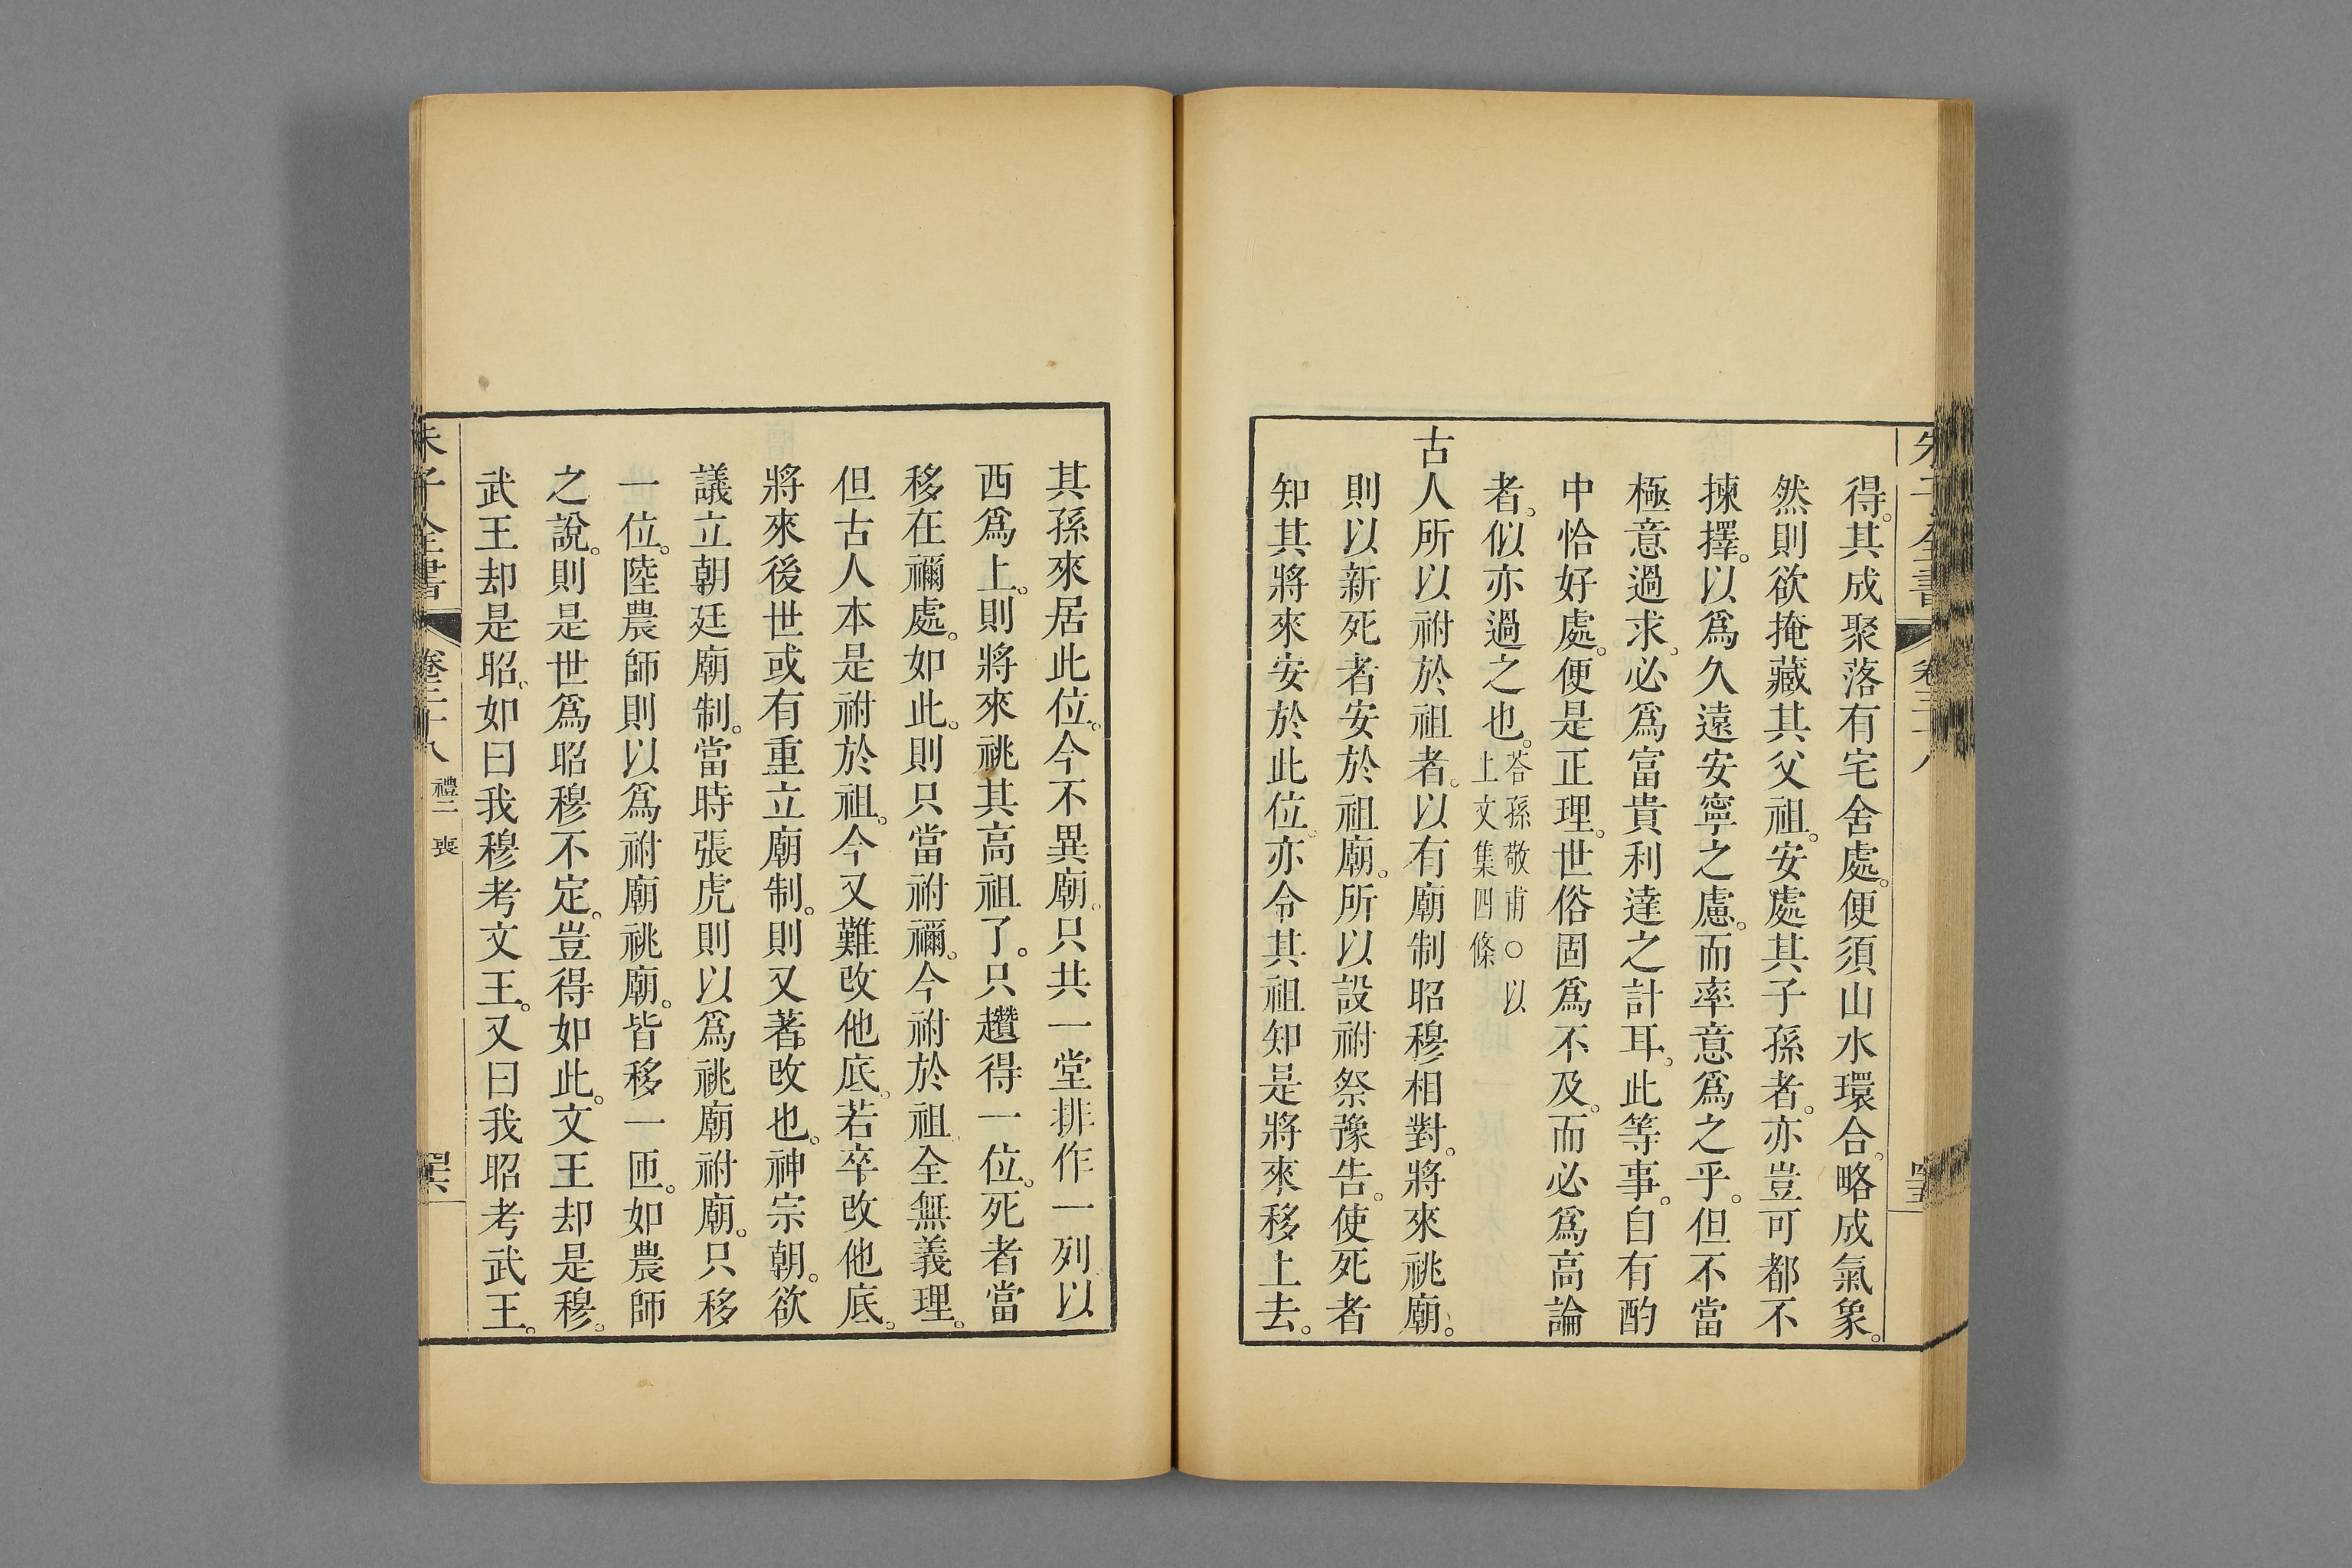 得。其成聚落有宅舍處。便須山水環合。略成氣象。
然則欲掩藏其父祖。安處其子孫者。亦豈可都不
揀擇。以爲久遠安寧之慮。而率意爲之乎。但不當
極意過求。必爲富貴利達之計耳。此等事。自有酌
中恰好處。便是正理。世俗固爲不及。而必爲高論
者。似亦過之也。
荅孫敬甫○以
上文集四條
古人所以祔於祖者。以有廟制昭穆相對。將來祧廟。
則以新死者安於祖廟。所以設祔祭豫告。使死者
知其將來安於此位。亦令其祖知是將來移上去。
其孫來居此位。今不異廟。只共一堂排作一列以
西爲上。則將來祧其高祖了。只趲得一位。死者當
移在禰處。如此。則只當祔禰。今祔於祖。全無義理。
但古人本是祔於祖。今又難改他底。若卒改他底。
將來後世或有重立廟制。則又著改也。神宗朝。欲
議立朝廷廟制。當時張虎則以爲祧廟祔廟。只移
一位。陸農師則以爲祔廟祧廟。皆移一匝。如農師
之說。則是世爲昭穆不定。豈得如此。文王却是穆。
武王却是昭。如曰我穆考文王。又曰我昭考武王。
朱子全書
卷三十八
禮二
喪